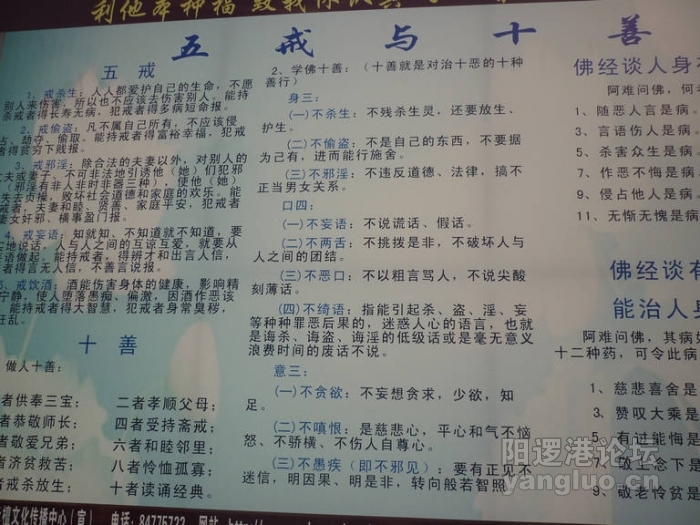 利他本种福
五戒与十善
五戒
1、戒杀生：人人都爱护自己的生命，不愿
别人来伤害，所以也不应该去伤害别人。能持
杀戒者得长寿无病，犯戒者得多病短命报。
2、戒偷盗：凡不属自己所有，不应该侵
占、劫夺、偷取。能持戒者得富裕幸福，犯戒
者得贫穷下贱报。
3、戒邪淫：除合法的夫妻以外，对别人的
丈夫或妻子，不可非法地引诱他（她）们犯邪
（邪淫有非人非时非器三种），使他（她）
失去贞操，败坏社会道德和家庭的欢乐。能
戒者，夫妻和睦、贤善、家庭平安，犯戒者
妻女奸邪、横事盈门报。
4、戒妄语：知就知、不知道就不知道，要
实地说话，人与人之间的互谅互爱，就要从
妄语做起。能持戒者，得辨才和出言人信，
者得言无人信，不善言说报。
5、戒饮酒：酒能伤害身体的健康，影响精
宁静，使人堕落愚痴、偏激，因酒作恶该
能持戒者得大智慧，犯戒者身常臭秽，
狂乱。
十善
做人十善：
者供奉三宝；二者孝顺父母；
者恭敬师长；四者受持斋戒；
者敬爱兄弟；六者和睦邻里；
者济贫救苦；八者怜恤孤寡；
者戒杀放生；十者读诵经典。
2、学佛十善：（十善就是对治十恶的十种
善行）
身三：
（一）不杀生：不残杀生灵，还要放生、
护生。
（二）不偷盗：不是自己的东西，不要据
为己有，进而能行施舍。
（三）不邪淫：不违反道德、法律，搞不
正当男女关系。
口四：
（一）不妄语：不说谎话、假话。
（二）不两舌：不挑拨是非，不破坏人与
人之间的团结。
（三）不恶口：不以粗言骂人，不说尖酸
刻薄话。
（四）不绮语：指能引起杀、盗、淫、妄
等种种罪恶后果的，迷惑人心的语言，也就
是诲杀、诲盗、诲淫的低级话或是毫无意义
浪费时间的废话不说。
意三：
（一）不贪欲：不妄想贪求，少欲，知
足。
（二）不嗔恨：是慈悲心，平心和气不恼
怒、不骄横、不伤人自尊心。
（三）不愚痴（即不邪见）：要有正见不
迷信，明因果、明是非，转向般若智照
佛经谈人身
阿难问佛，何
1、随恶人言是病。
3、言语伤人是病。
5、杀害众生是病。
7、作恶不悔是病。
9、侵占他人是病。
11、无惭无愧是病
佛经谈有
能治人身
阿难问佛，其病
十二种药，可令此病
1、慈悲喜舍是
3、赞叹大乘是
5、有过能悔是
7、敬上念下是
9、敬老怜贫是
文化传播中心（宣） 电话：84775722 网站
阳逻港论坛
yangluo.cn